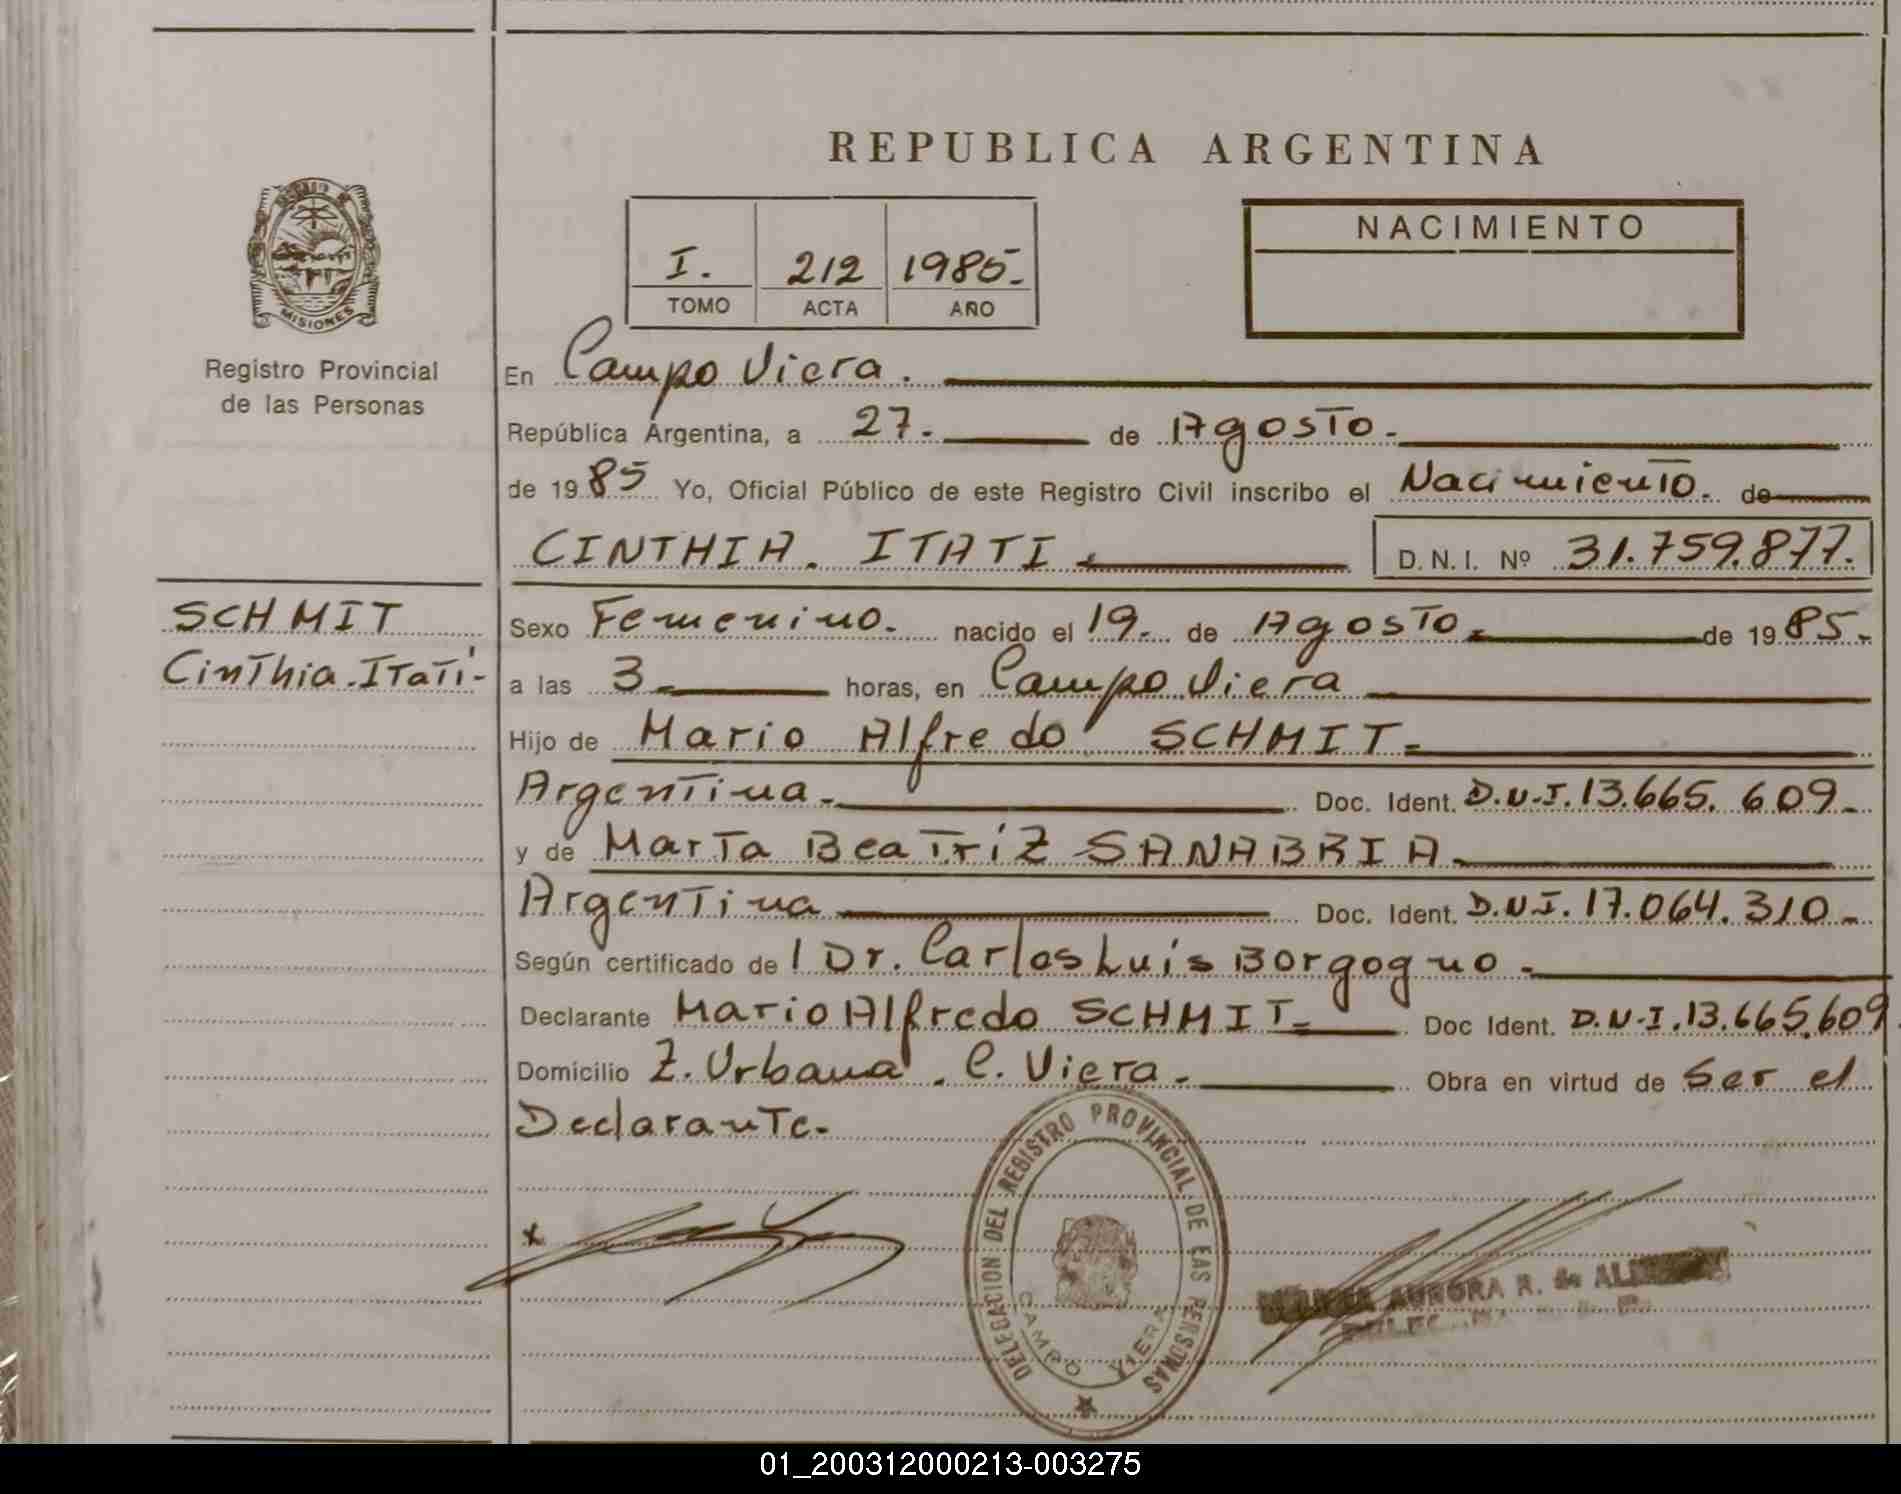 REPUBLICA ARGENTINA
I. 212 1985.
TOMO ACTA AÑO
NACIMIENTO
MISIONES
Registro Provincial
de las Personas
En Campo Viera.
República Argentina, a 27. de Agosto.
de 1985 Yo, Oficial Público de este Registro Civil inscribo el Nacimiento. de
CINTHIA. ITATI. D.N.I. Nº 31.759.877.
SCHMIT
Cinthia.Itatí-
Sexo Femenino. nacido el 19. de Agosto. de 1985.
a las 3. horas, en Campo Viera
Hijo de Mario Alfredo SCHMIT.
Argentina. Doc. Ident. D.N.I. 13.665.609.
y de Marta Beatríz SANABRIA.
Argentina Doc. Ident. D.N.I. 17.064.310.
Según certificado de l Dr. Carlos Luís Borgogno.
Declarante Mario Alfredo SCHMIT. Doc Ident. D.N.I. 13.665.609
Domicilio Z. Urbana. C. Viera. Obra en virtud de Ser el
Declarante.
DELEGACION DEL REGISTRO PROVINCIAL DE LAS PERSONAS
CAMPO VIERA
AURORA R. de
01_200312000213-003275